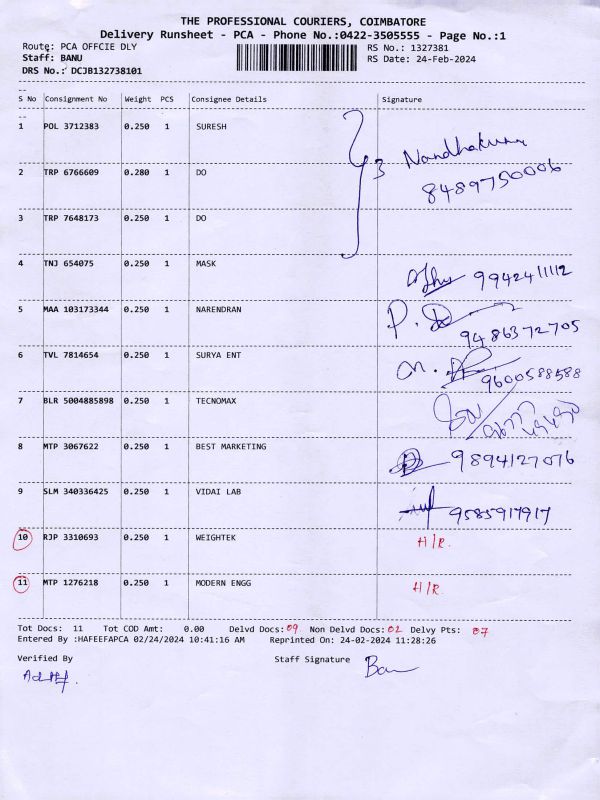 THE PROFESSIONAL COURIERS, COIMBATORE
Delivery Runsheet - PCA - Phone No.:0422-3505555 - Page No.:1
Route: PCA OFFCIE DLY RS No.: 1327381
Staff: BANU RS Date: 24-Feb-2024
DRS No.: DCJB132738101
S No Consignment No Weight PCS Consignee Details Signature
1 POL 3712383 0.250 1 SURESH
3 Nandhakumar
2 TRP 6766609 0.280 1 DO 8489750006
3 TRP 7648173 0.250 1 DO
4 TNJ 654075 0.250 1 MASK 9942411112
5 MAA 103173344 0.250 1 NARENDRAN P. 9486372705
6 TVL 7814654 0.250 1 SURYA ENT 9600588588
7 BLR 5004885898 0.250 1 TECNOMAX
8 MTP 3067622 0.250 1 BEST MARKETING 9894127076
9 SLM 340336425 0.250 1 VIDAI LAB 9585917917
10 RJP 3310693 0.250 1 WEIGHTEK H/R.
11 MTP 1276218 0.250 1 MODERN ENGG H/R.
Tot Docs: 11 Tot COD Amt: 0.00 Delvd Docs: 09 Non Delvd Docs: 02 Delvy Pts: 07
Entered By :HAFEEFAPCA 02/24/2024 10:41:16 AM Reprinted On: 24-02-2024 11:28:26
Verified By Staff Signature
Ban